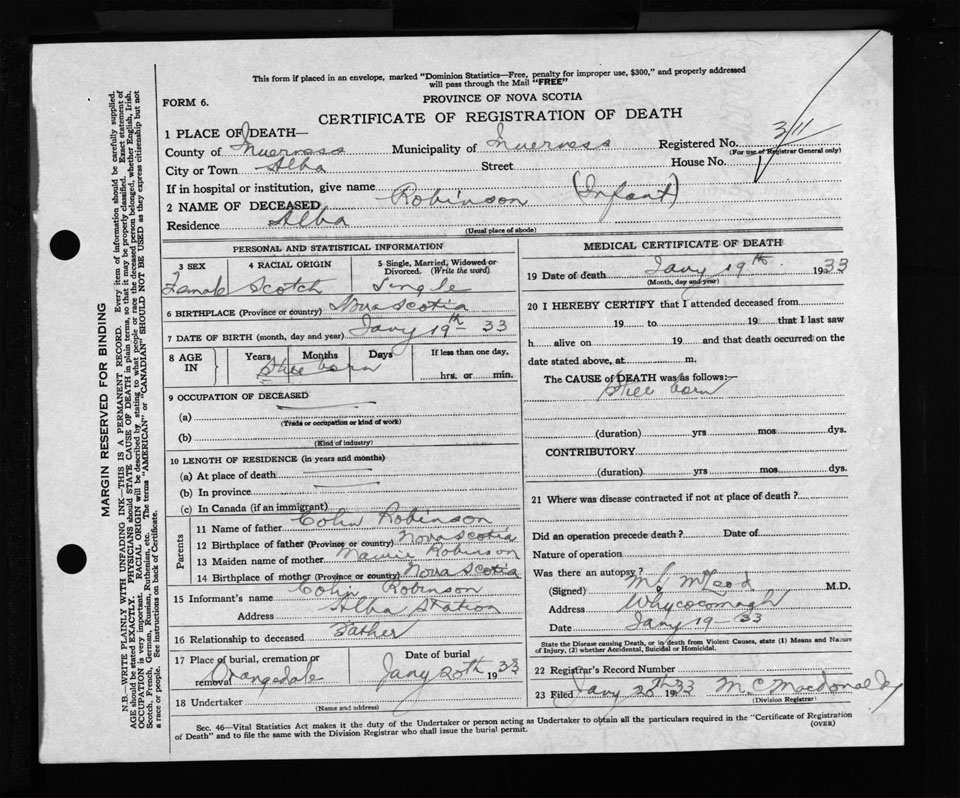 This form if placed in an envelope, marked "Dominion Statistics—Free, penalty for improper use, $300," and properly addressed
will pass through the Mail "FREE"
FORM 6.
PROVINCE OF NOVA SCOTIA
CERTIFICATE OF REGISTRATION OF DEATH
1 PLACE OF DEATH—
County of Inverness Municipality of Inverness Registered No. 311
(For use of Registrar General only)
City or Town Alba Street House No.
If in hospital or institution, give name
2 NAME OF DECEASED Robinson (Infant)
Residence Alba
(Usual place of abode)
PERSONAL AND STATISTICAL INFORMATION
3 SEX 4 RACIAL ORIGIN 5 Single, Married, Widowed or
Divorced. (Write the word)
Female Scotch Single
6 BIRTHPLACE (Province or country) Nova Scotia
7 DATE OF BIRTH (month, day and year) Jany 19th 33
8 AGE IN Years Months Days If less than one day,
Still born hrs. or min.
9 OCCUPATION OF DECEASED
(a)
(Trade or occupation or kind of work)
(b)
(Kind of industry)
10 LENGTH OF RESIDENCE (in years and months)
(a) At place of death
(b) In province
(c) In Canada (if an immigrant)
Parents
11 Name of father Colin Robinson
12 Birthplace of father (Province or country) Nova Scotia
13 Maiden name of mother Robinson
14 Birthplace of mother (Province or country) Nova Scotia
15 Informant's name Colin Robinson
Address Alba Station
16 Relationship to deceased Father
17 Place of burial, cremation or Date of burial
removal Orangedale Jany 20th 1933
18 Undertaker
(Name and address)
MEDICAL CERTIFICATE OF DEATH
19 Date of death Jany 19th 1933
(Month, day and year)
20 I HEREBY CERTIFY that I attended deceased from
19 to 19 that I last saw
h alive on 19 and that death occurred on the
date stated above, at m.
The CAUSE of DEATH was as follows:—
Still born
(duration) yrs mos dys.
CONTRIBUTORY
(duration) yrs mos dys.
21 Where was disease contracted if not at place of death?
Did an operation precede death? Date of
Nature of operation
Was there an autopsy?
(Signed) McLeod M.D.
Address Whycocomagh
Date Jany 19-33
State the Disease causing Death, or in death from Violent Causes, state (1) Means and Nature
of Injury, (2) whether Accidental, Suicidal or Homicidal.
22 Registrar's Record Number
23 Filed Jany 20th 1933 M. C Macdonald
(Division Registrar)
Sec. 46—Vital Statistics Act makes it the duty of the Undertaker or person acting as Undertaker to obtain all the particulars required in the "Certificate of Registration
of Death" and to file the same with the Division Registrar who shall issue the burial permit. (OVER)
MARGIN RESERVED FOR BINDING
N.B.—WRITE PLAINLY WITH UNFADING INK—THIS IS A PERMANENT RECORD. Every item of information should be carefully supplied.
AGE should be stated EXACTLY. PHYSICIANS should STATE CAUSE OF DEATH in plain terms, so that it may be properly classified. Exact statement of
OCCUPATION is very important. RACIAL ORIGIN will be described by stating to what people or race the deceased person belonged, whether English, Irish,
Scotch, French, German, Russian, Ruthenian, etc. The terms "AMERICAN" or "CANADIAN" SHOULD NOT BE USED as they express citizenship but not
a race or people. See instructions on back of Certificate.